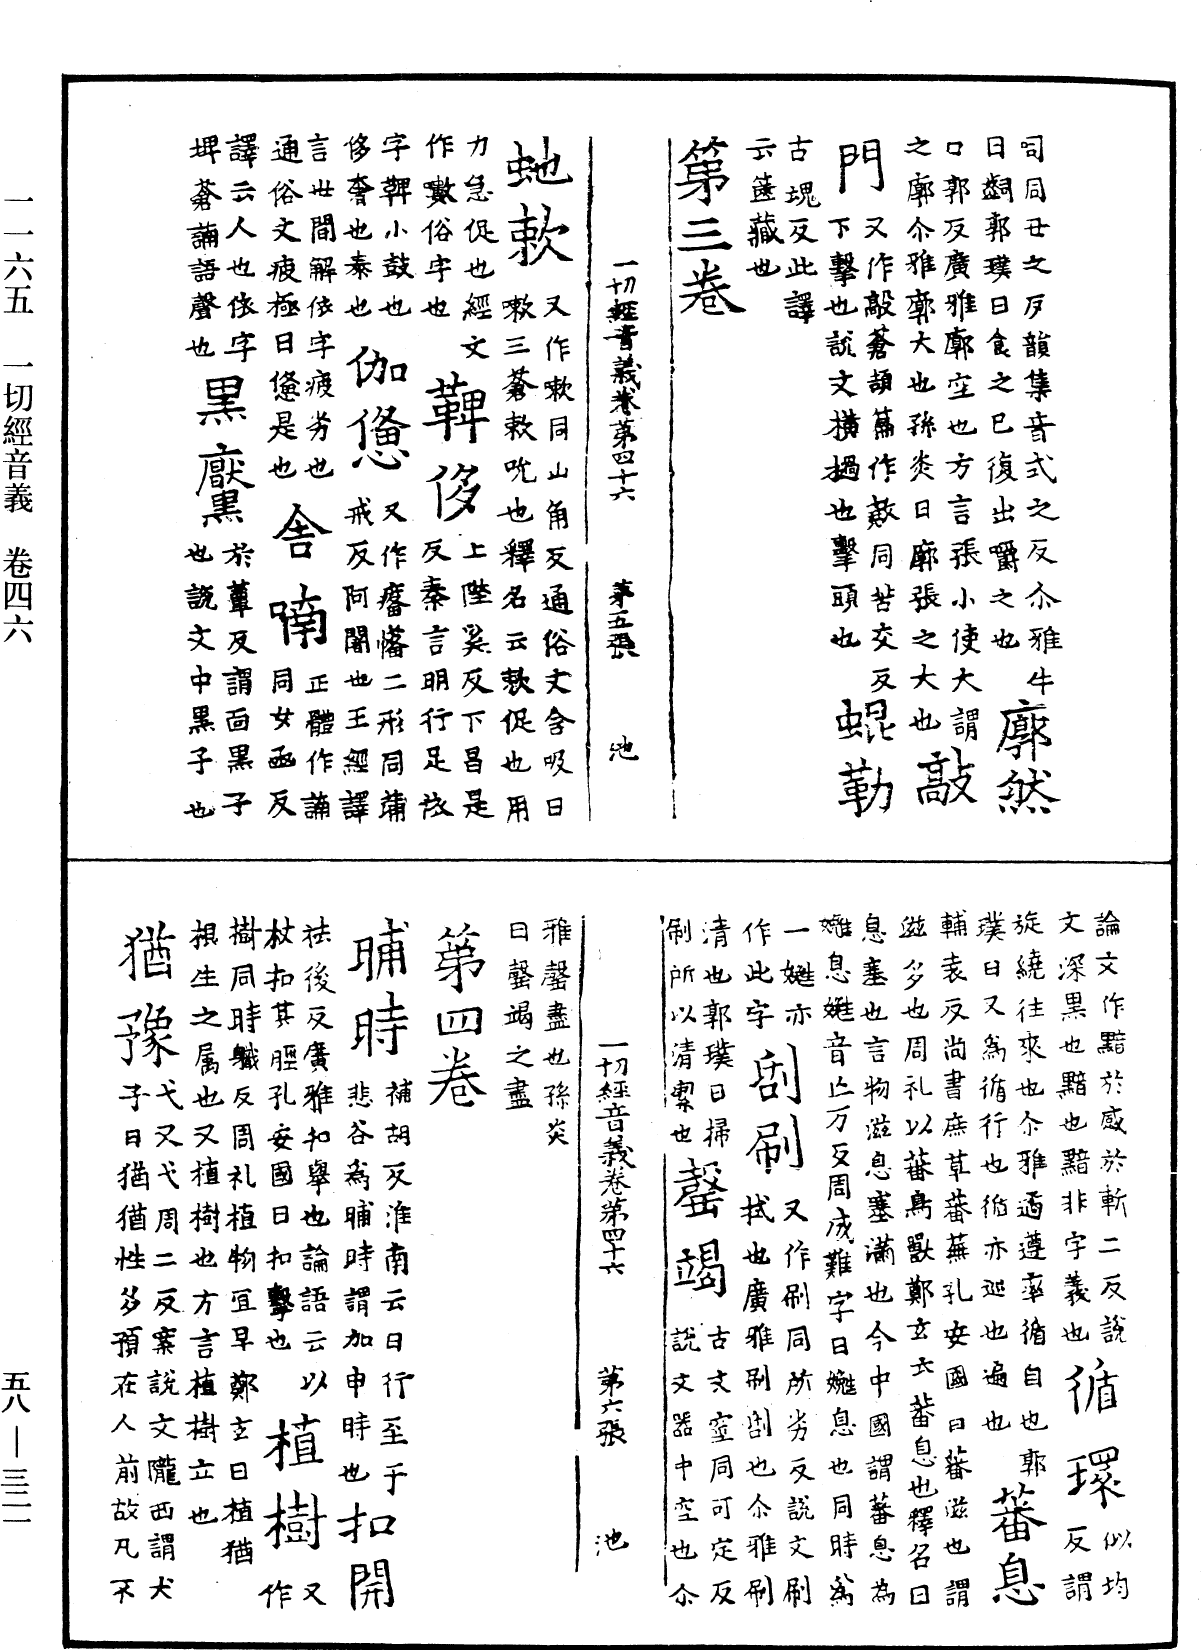 司同丑之反韻集音式之反尒雅牛
日齝郭璞曰食之已復出嚼之也
廓然
口郭反廣雅廓空也方言張小使大謂
之廓尒雅廓大也孫炎曰廓張之大也
敲
門
又作敲蒼頡篇作㪣同苦交反
下擊也說文橫撾也擊頭也
蜫勒
古魂反此譯
云篋藏也
第三卷
一切經音義卷第四十六 第五張 池
虵欶
又作嗽同山角反通俗文含吸曰
嗽三蒼欶吮也釋名云欶促也用
力急促也經文
作嗽俗字也
鞞侈
上陛奚反下昌是
反秦言明行足依
字鞞小鼓也
侈奢也泰也
伽憊
又作㿑㣁二形同蒲
戒反阿闍也王經譯
言世間解依字疲劣也
通俗文疲極曰憊是也
舍喃
正體作諵
同女函反
譯云人也依字
埤蒼諵語聲也
黑黶
於簟反謂面黑子
也說文中黑子也
論文作黯於感於斬二反說
文深黑也黯也黯非字義也
循環
似均
反謂
旋繞往來也尒雅遹遵率循自也郭
璞曰又為循行也循亦巡也遍也
蕃息
輔袁反尚書庶草蕃蕪孔安國曰蕃滋也謂
滋多也周礼以蕃鳥獸鄭玄云蕃息也釋名曰
息塞也言物滋息塞滿也今中國謂蕃息為
嬎息嬎音亡万反周成難字曰嬎息也同時為
一嬎亦
作此字
刮刷
又作㕞同所劣反說文刷
拭也廣雅刷刮也尒雅刷
清也郭璞曰掃
刷所以清潔也
罄竭
古文窒同可定反
說文器中空也尒
雅罄盡也孫炎
曰罄竭之盡
第四卷
一切經音義卷第四十六 第六張 池
晡時
補胡反淮南云日行至于
悲谷為晡時謂加申時也
扣開
祛後反廣雅扣舉也論語云以
杖扣其脛孔安國曰扣擊也
植樹
又
作
樹同時軄反周礼植物宜早鄭玄曰植猶
根生之属也又植樹也方言植樹立也
猶豫
弋又弋周二反案說文隴西謂犬
子曰猶猶性多預在人前故凡不
一一六五 一切經音義 卷四六
五八—三二一